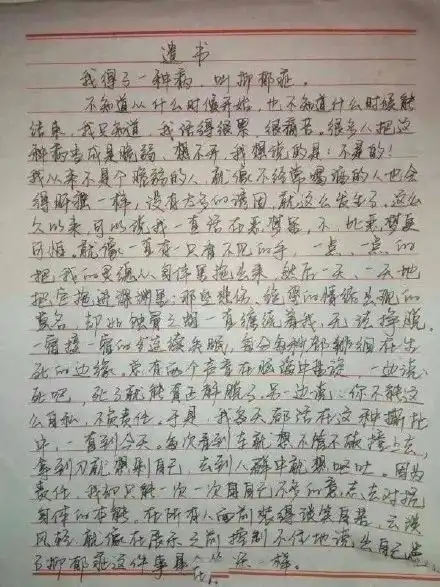 遗书
我得了一种病，叫抑郁症。
不知道从什么时候开始，也不知道什么时候能
结束，我只知道，我活得很累，很痛苦。很多人把这
种病当成是脆弱，想不开，我想说的是：不是的！
我从来不是个脆弱的人，就像不经常喝酒的人也会
得肝癌一样，没有太多的诱因，就这么发生了，这么
久以来，可以说我一直活在恶梦里，不，比恶梦更
可怕，就像一直有一只看不见的手，一点、一点的
把我的灵魂从身体里拖出来，然后一天、一天地
把它拖进深渊里：那些悲伤、绝望的情绪
莫名，却如蚀骨之蛆一直缠绕着我，无法挣脱，
一宿接一宿的失眠，每分每秒都徘徊在生
死的边缘。总有两个声音在脑海中，一边说：
死吧，死了就能真正解脱了，另一边说：你不能这
么自私，不负责任。于是，我每天都活在这种撕扯
中，一直到今天。每次看到车就想不撞上去，
拿到刀就想刺自己，去到人群中就想呕吐。因为
责任，我却只能一次一次用自己不多的意志去对抗
身体的本能。在所有人面前装得谈笑自若，云淡
风轻，就像在
了抑郁症这件事是个笑乐一样。